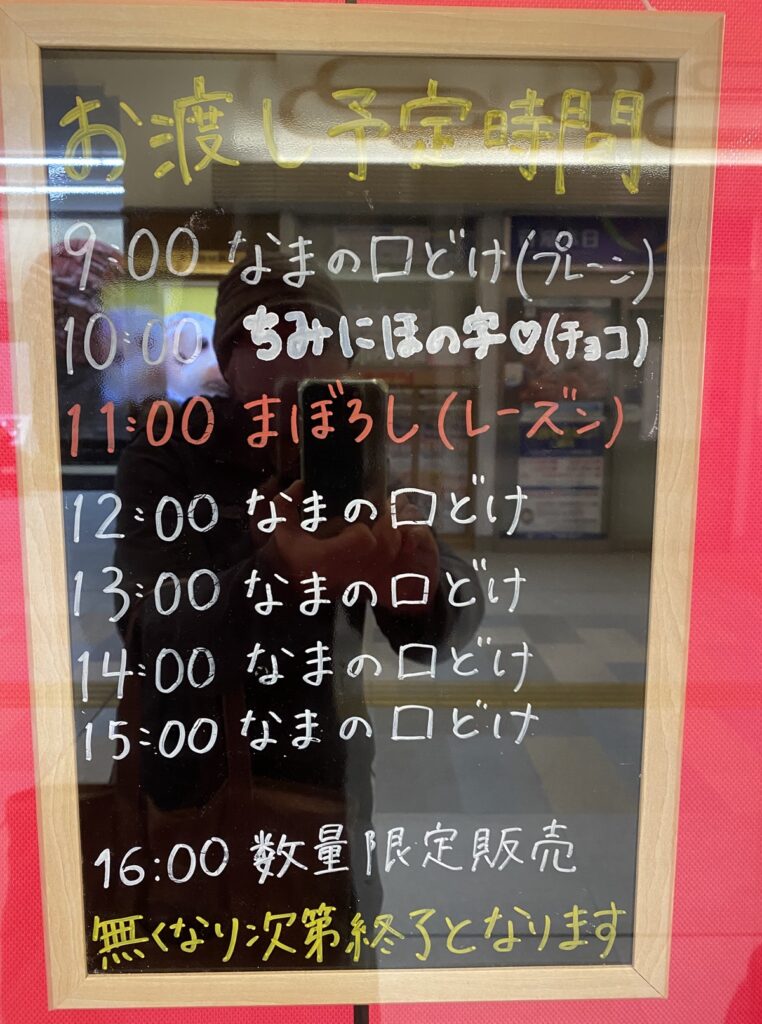 お渡し予定時間
9:00 なまの口どけ(プレーン)
10:00 ちみにほの字♡(チョコ)
11:00 まぼろし(レーズン)
12:00 なまの口どけ
13:00 なまの口どけ
14:00 なまの口どけ
15:00 なまの口どけ
16:00 数量限定販売
無くなり次第終了となります